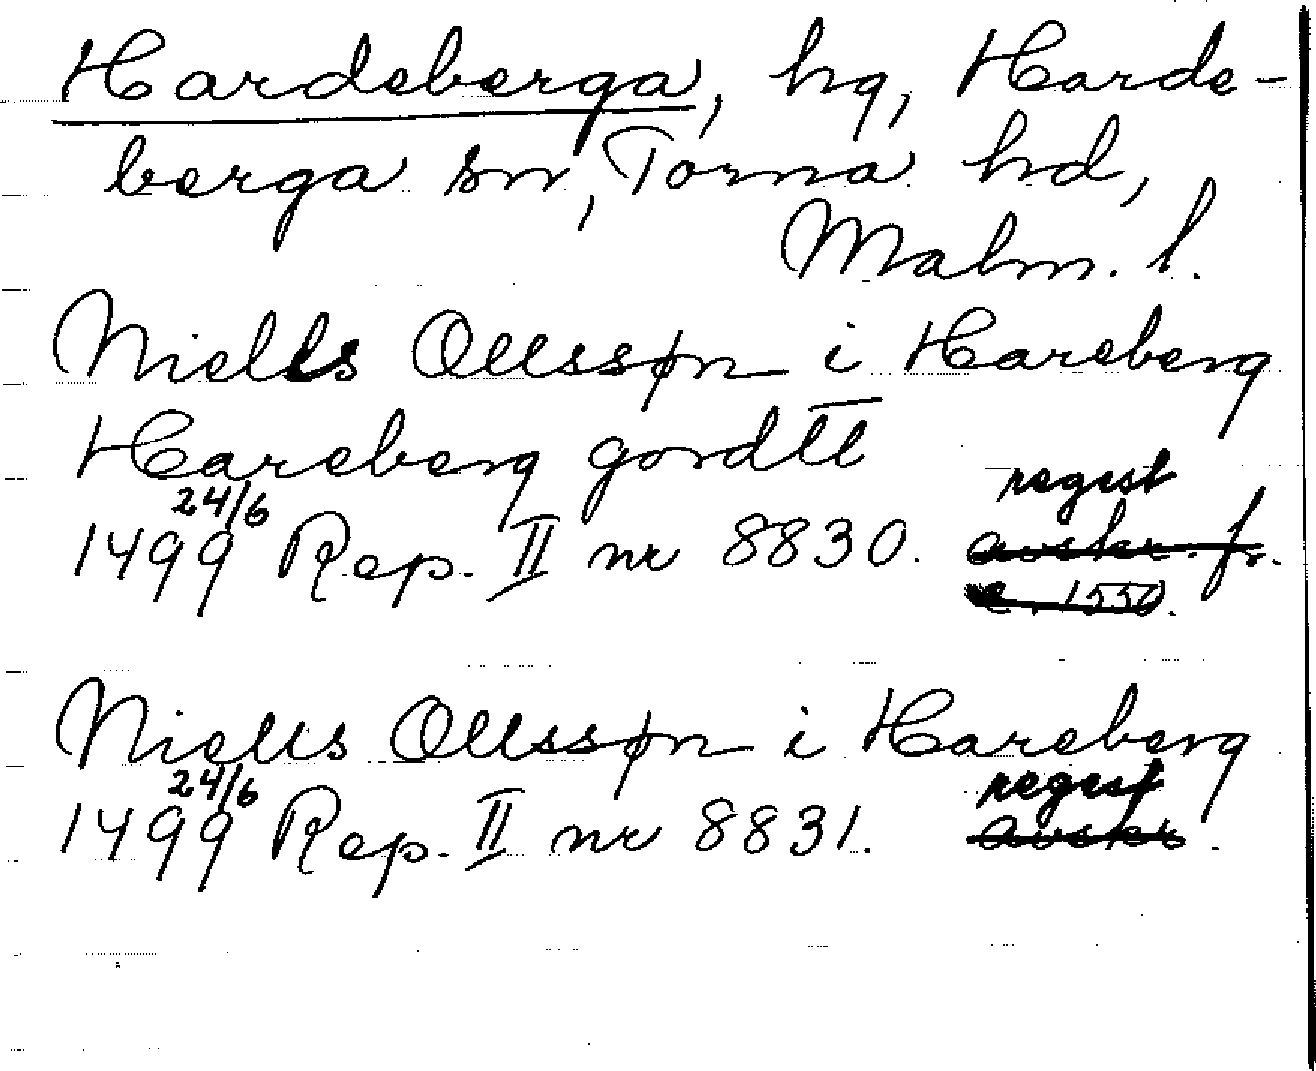 Hardeberga, hg, Harde-
berga sn, Torna hd,
Malm. l.
Niells Ollssøn i Hareberg
Hareberg gordtt
24/6 regest
1499 Rep. II nr 8830. avskr. fr.
c. 1550.
Niells Ollssøn i Hareberg
24/6 regest
1499 Rep. II nr 8831. avskr.